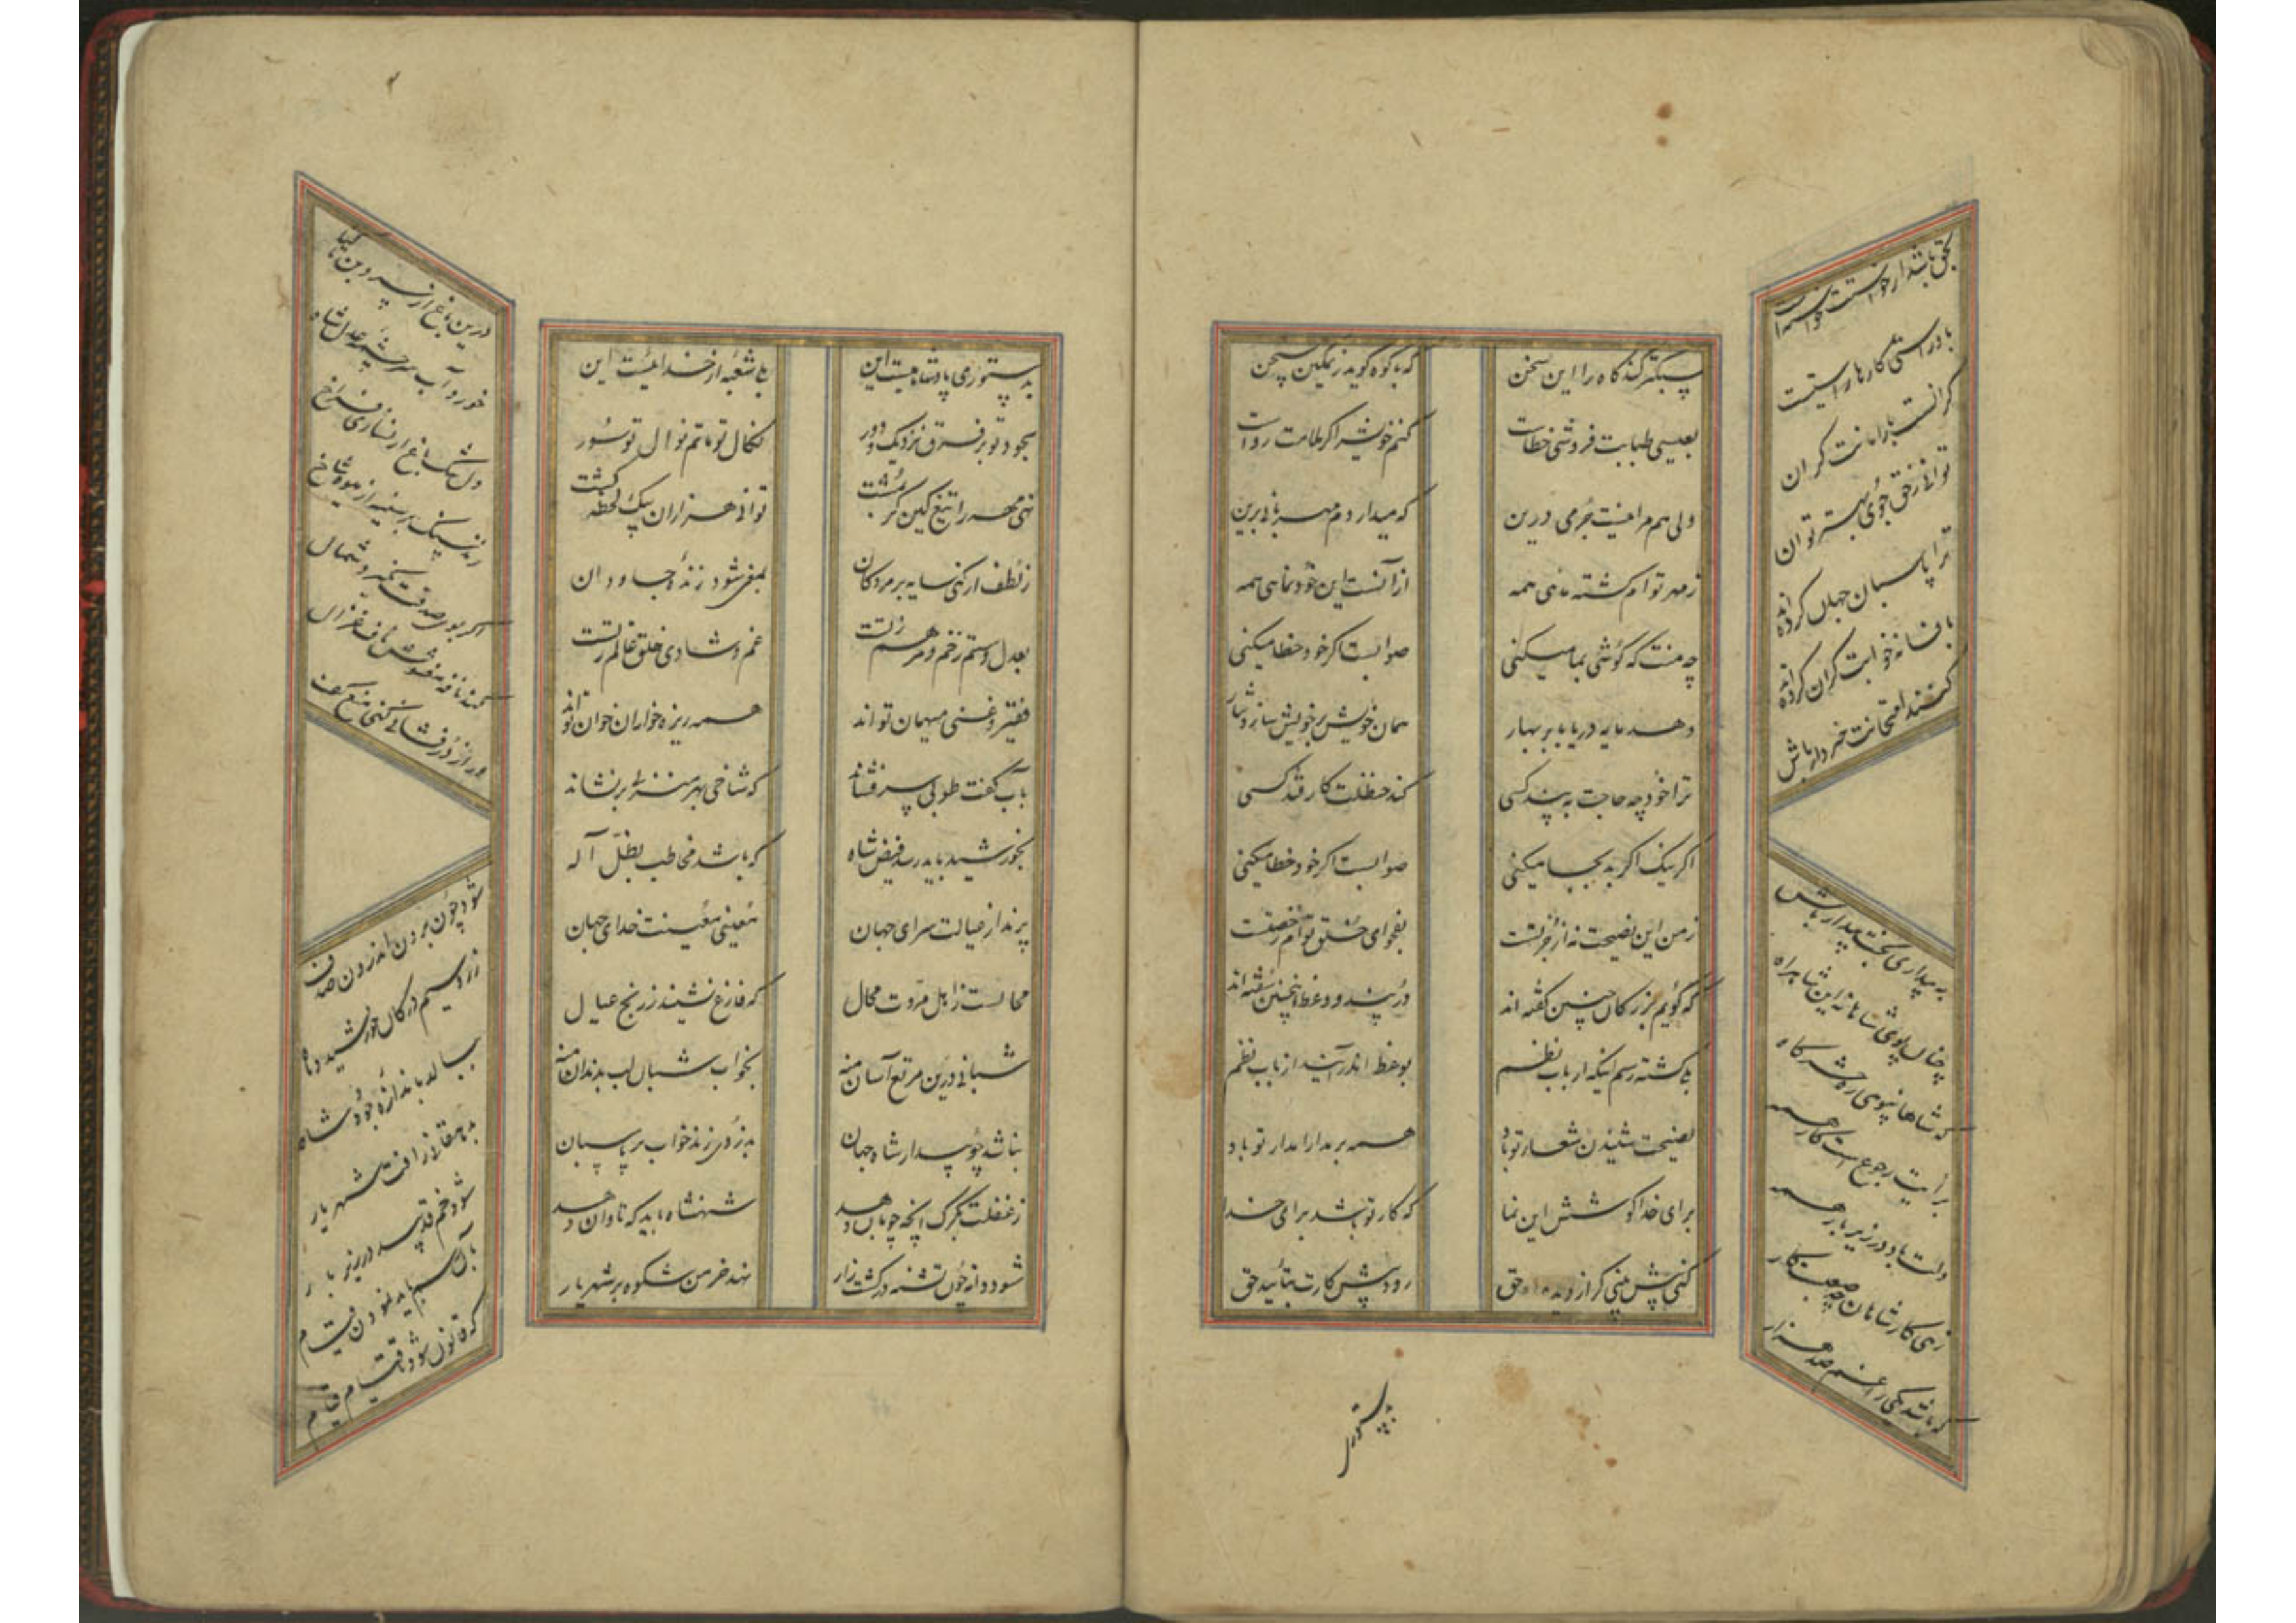 سبکتر کند کاه را این سخن
که با کوه گوید ز تمکین سخن
بعیسی طبابت فروشی خطاست
کنم خویش را گر ملامت رواست
ولی هم مرا نیست جرمی درین
که میداردم مهربانی برین
ز مهر توام گشته ماهی همه
از آنست این خودنمایی همه
چه منت که گوشی بما میکنی
صوابست اگر خود خطا میکنی
دهد مایه دریا بابر بهار
همان خویش بر خویش سازد نثار
ترا خود چه حاجت به پند کسی
کند حنظلت کار قند کسی
اگر نیک اگر بد بجا میکنی
صوابست اگر خود خطا میکنی
ز من این نصیحت نه از جرئتست
بفحوای خلق توام رخصتست
که گویم بزرگان چنین گفته اند
در پند و وعظ اینچنین سفته اند
بلی گشته رسم اینکه ارباب نظم
بوعظ اندر آیند از باب نظم
نصیحت شنیدن شعار تو باد
همه بر مدارا مدار تو باد
برای خدا کوشش این نما
که کار تو باشد برای خدا
کنی پیش بینی گر از دیده حق
رود پیش کارت بتأیید حق
بحق باشد ار خواستت خواستت
با در استی کارها راستیست
گرانست بار امانت گران
توانی ز حق جوی بهتر توان
ترا پاسبان جهان کرده اند
بافسانه خوابت گران کرده اند
کنند امتحانت خبردار باش
به بیداری بخت بیدار باش
چنان پوی شاهانه این شاهراه
که شاها نپویی ره حشرگاه
برأیت رجوع است کار همه
دلت باد در زیر بار همه
زهی کار شاهان و صعب کار
که باشد یکی را غم صد هزار
بدستوری
بدستوری پادشاهیست این
بلی شعبه از خدائیست این
بجود تو بر فرق نزدیک و دور
نکال تو ماتم نوال تو سور
نهی مهر را تیغ کین گر بمشت
توانی هزاران بیک لحظه کشت
ز لطف ار کنی سایه بر مردگان
بمغزی شود زنده جاودان
بعدل و ستم زخم و مرهم ز تست
غم و شادی خلق عالم ز تست
فقیر و غنی میهمان تو اند
همه ریزه خواران خوان تو اند
بآب کفت طوبی سر فشاند
که شاخی بهر منزلی بر نشاند
بخورشید باید رسد فیض شاه
که باشد مخاطب بظل آله
پرند از خیالت سرای جهان
معینی معینت خدای جهان
محالست ز اهل مروت محال
که فارغ نشیند ز رنج عیال
شبانی درین مرتع آسان منه
بخواب شبان لب بدندان منه
نباشد چو بیدار شاه جهان
بدزدی زند خواب بر پاسبان
ز غفلت بگرگ آنچه چوپان دهد
شهنشاه باید که تاوان دهد
شود دانه چون تشنه در کشتزار
نهد خرمن شکوه بر شهریار
درین باغ از سرو بن تا گیا
خورد آب سرچشمه عدل شاه
دل تنگ باغ ار نسازی فراخ
زند سنگ بر سینه از میوه شاخ
اگر بوی صدقت نگیرد شمال
کند نافه مغشوش ناف غزال
ور از در فشانی کنی منع کف
شود چون برون اندرون صدف
زر و سیم در کان خورشید و ماه
ببالد باندازه جود شاه
بدهقانی رافت شهریار
شود خم قد سدر در زیر بار
بآن رسم باید نمودن قیام
که قانون شود تا قیام قیام